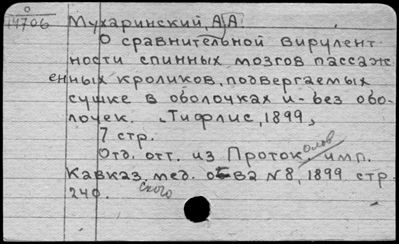 0
14706
Мухаринский, А А
О сравнительной вирулент
ности спинных мозгов пассаж
енных кроликов, подвергаемых
сушке в оболочках и-без обо-
лочек. Тифлис, 1899,
7 стр.
Отд. отт. из Проток.олов имп.
Кавказ.ского мед. о-ва № 8, 1899 стр.
240.